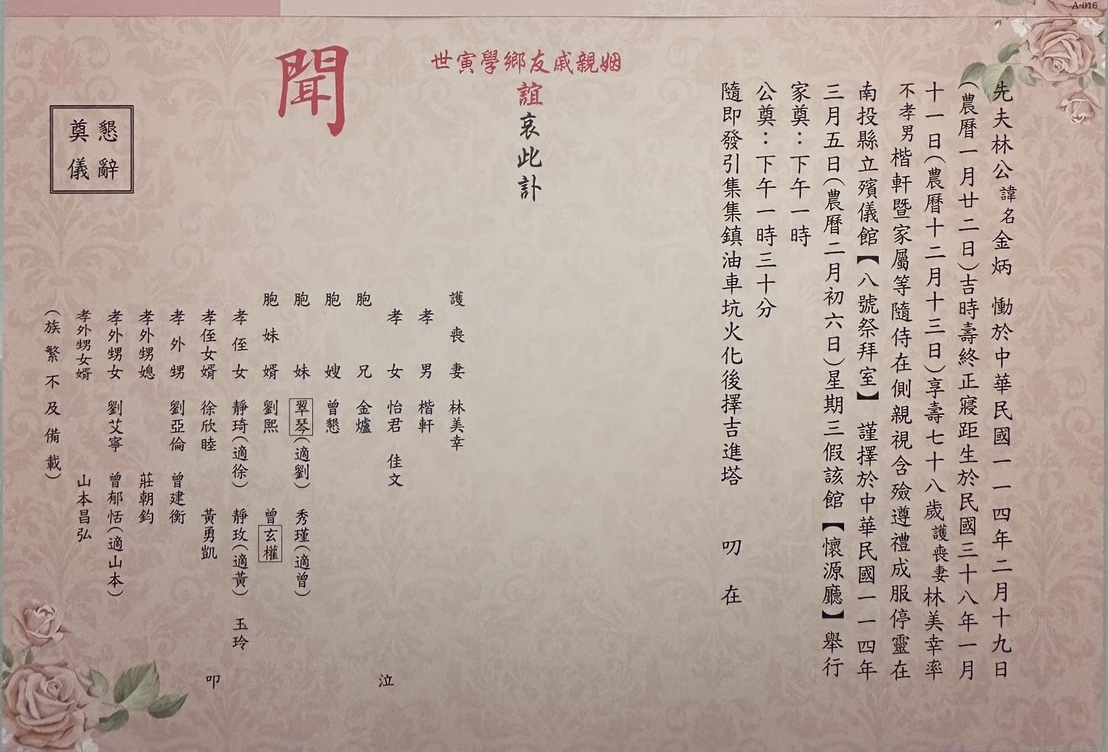 A-016
先夫林公諱名金炳　慟於中華民國一一四年二月十九日
(農曆一月廿二日)吉時壽終正寢距生於民國三十八年一月
十一日(農曆十二月十三日)享壽七十八歲護喪妻林美幸率
不孝男楷軒暨家屬等隨侍在側親視含殮遵禮成服停靈在
南投縣立殯儀館【八號祭拜室】謹擇於中華民國一一四年
三月五日(農曆二月初六日)星期三假該館【懷源廳】舉行
家奠：下午一時
公奠：下午一時三十分
隨即發引集集鎮油車坑火化後擇吉進塔　叨　在
姻親戚友鄉學寅世
誼哀此訃
聞
護喪妻　林美幸
孝男　楷軒
孝女　怡君　佳文
胞兄　金爐
胞嫂　曾懇
胞妹　翠琴(適劉)　秀瑾(適曾)
胞妹婿　劉熙　曾玄權
孝侄女　靜琦(適徐)　靜玫(適黃)　玉玲
孝侄女婿　徐欣睦　黃勇凱
孝外甥　劉亞倫　曾建衡
孝外甥媳　莊朝鈞
孝外甥女　劉艾寧　曾郁恬(適山本)
孝外甥女婿　山本昌弘
(族繁不及備載)
泣
叩
懇辭
奠儀